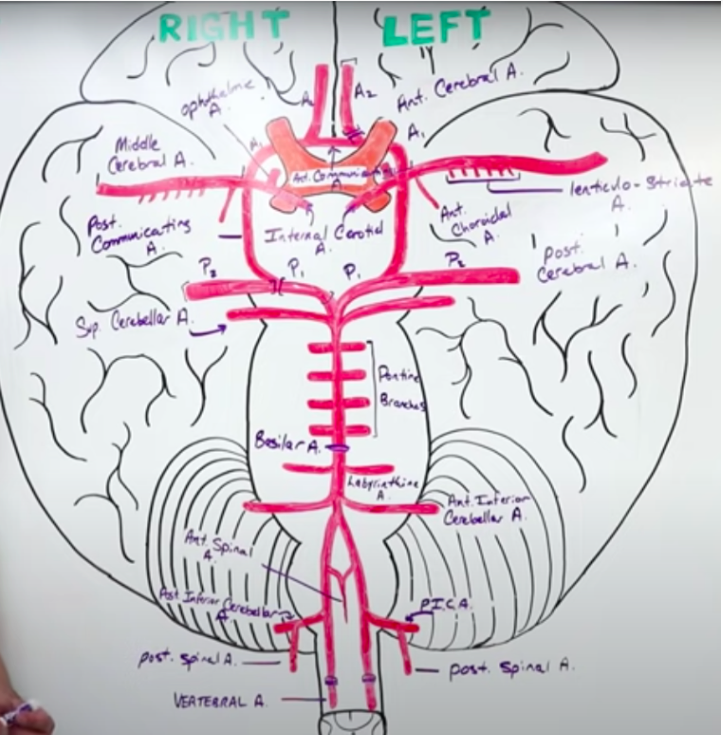 RIGHT
LEFT
ophthalmic
A.
A2
A2
Ant. Cerebral A.
A1
A1
Middle
Cerebral A.
Ant. Communicating
A
lenticulo-Striate
A.
Post.
Communicating
A.
Internal Carotid
A.
Ant.
Choroidal
A.
Post.
Cerebral A.
P2
P1
P1
P2
Sup. Cerebellar A.
Pontine
Branches
Basilar A.
Labyrinthine
A.
Ant. Inferior
Cerebellar A.
Ant. Spinal
A.
Post Inferior Cerebellar
A.
P.I.C.A.
post. spinal A.
post. Spinal A.
VERTEBRAL A.